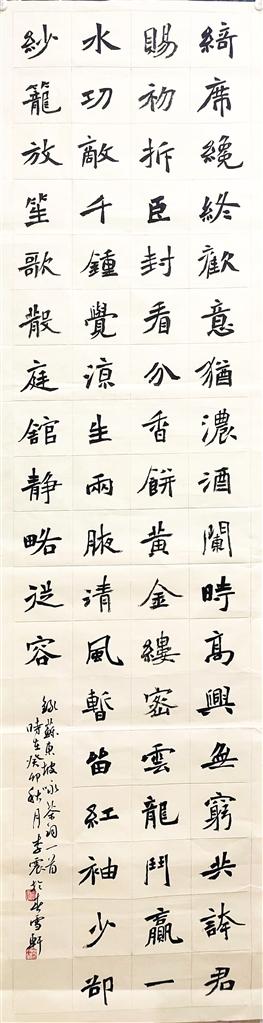 綺席纔終歡意猶濃酒闌時高興無窮共誇君
賜初拆臣封看分香餅黃金縷密雲龍鬥贏一
水功敵千鍾覺涼生兩腋清風暫留紅袖少卻
紗籠放笙歌散庭館靜略從容
錄蘇東坡詠茶詞一首
時在癸卯秋月李震於雪軒